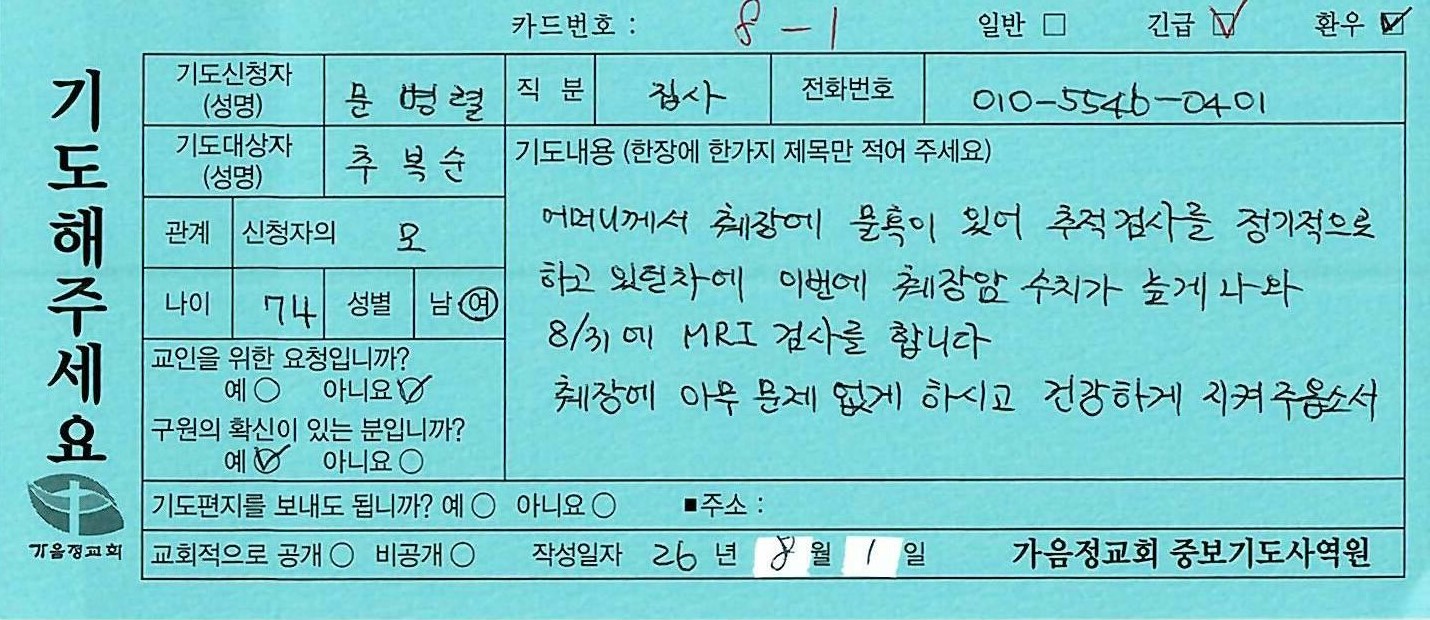 카드번호 : 8-1 일반 □ 긴급 ☑ 환우 ☑
기도해주세요
기도신청자 (성명) 문병렬 직분 집사 전화번호 010-5546-0401
기도대상자 (성명) 추복순
관계 신청자의 모
나이 74 성별 남 여
교인을 위한 요청입니까?
예 ○ 아니요 ☑
구원의 확신이 있는 분입니까?
예 ☑ 아니요 ○
기도내용 (한장에 한가지 제목만 적어 주세요)
어머니께서 췌장에 물혹이 있어 추적검사를 정기적으로
하고 있던차에 이번에 췌장암 수치가 높게 나와
8/31에 MRI 검사를 합니다
췌장에 아무 문제 없게 하시고 건강하게 지켜주옵소서
기도편지를 보내도 됩니까? 예 ○ 아니요 ○ ■주소 :
교회적으로 공개 ○ 비공개 ○ 작성일자 26 년 8 월 1 일 가음정교회 중보기도사역원
가음정교회